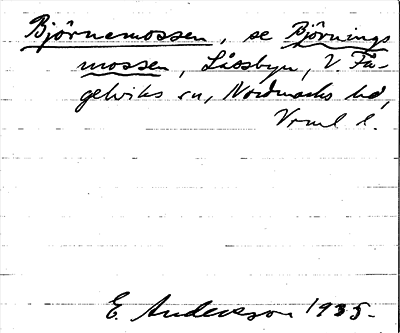 Björnemossen, se Björnings
mossen, Låssbyn, V. Få-
gelviks sn, Nordmarks hd,
Vrml l.
E. Andersson 1935.